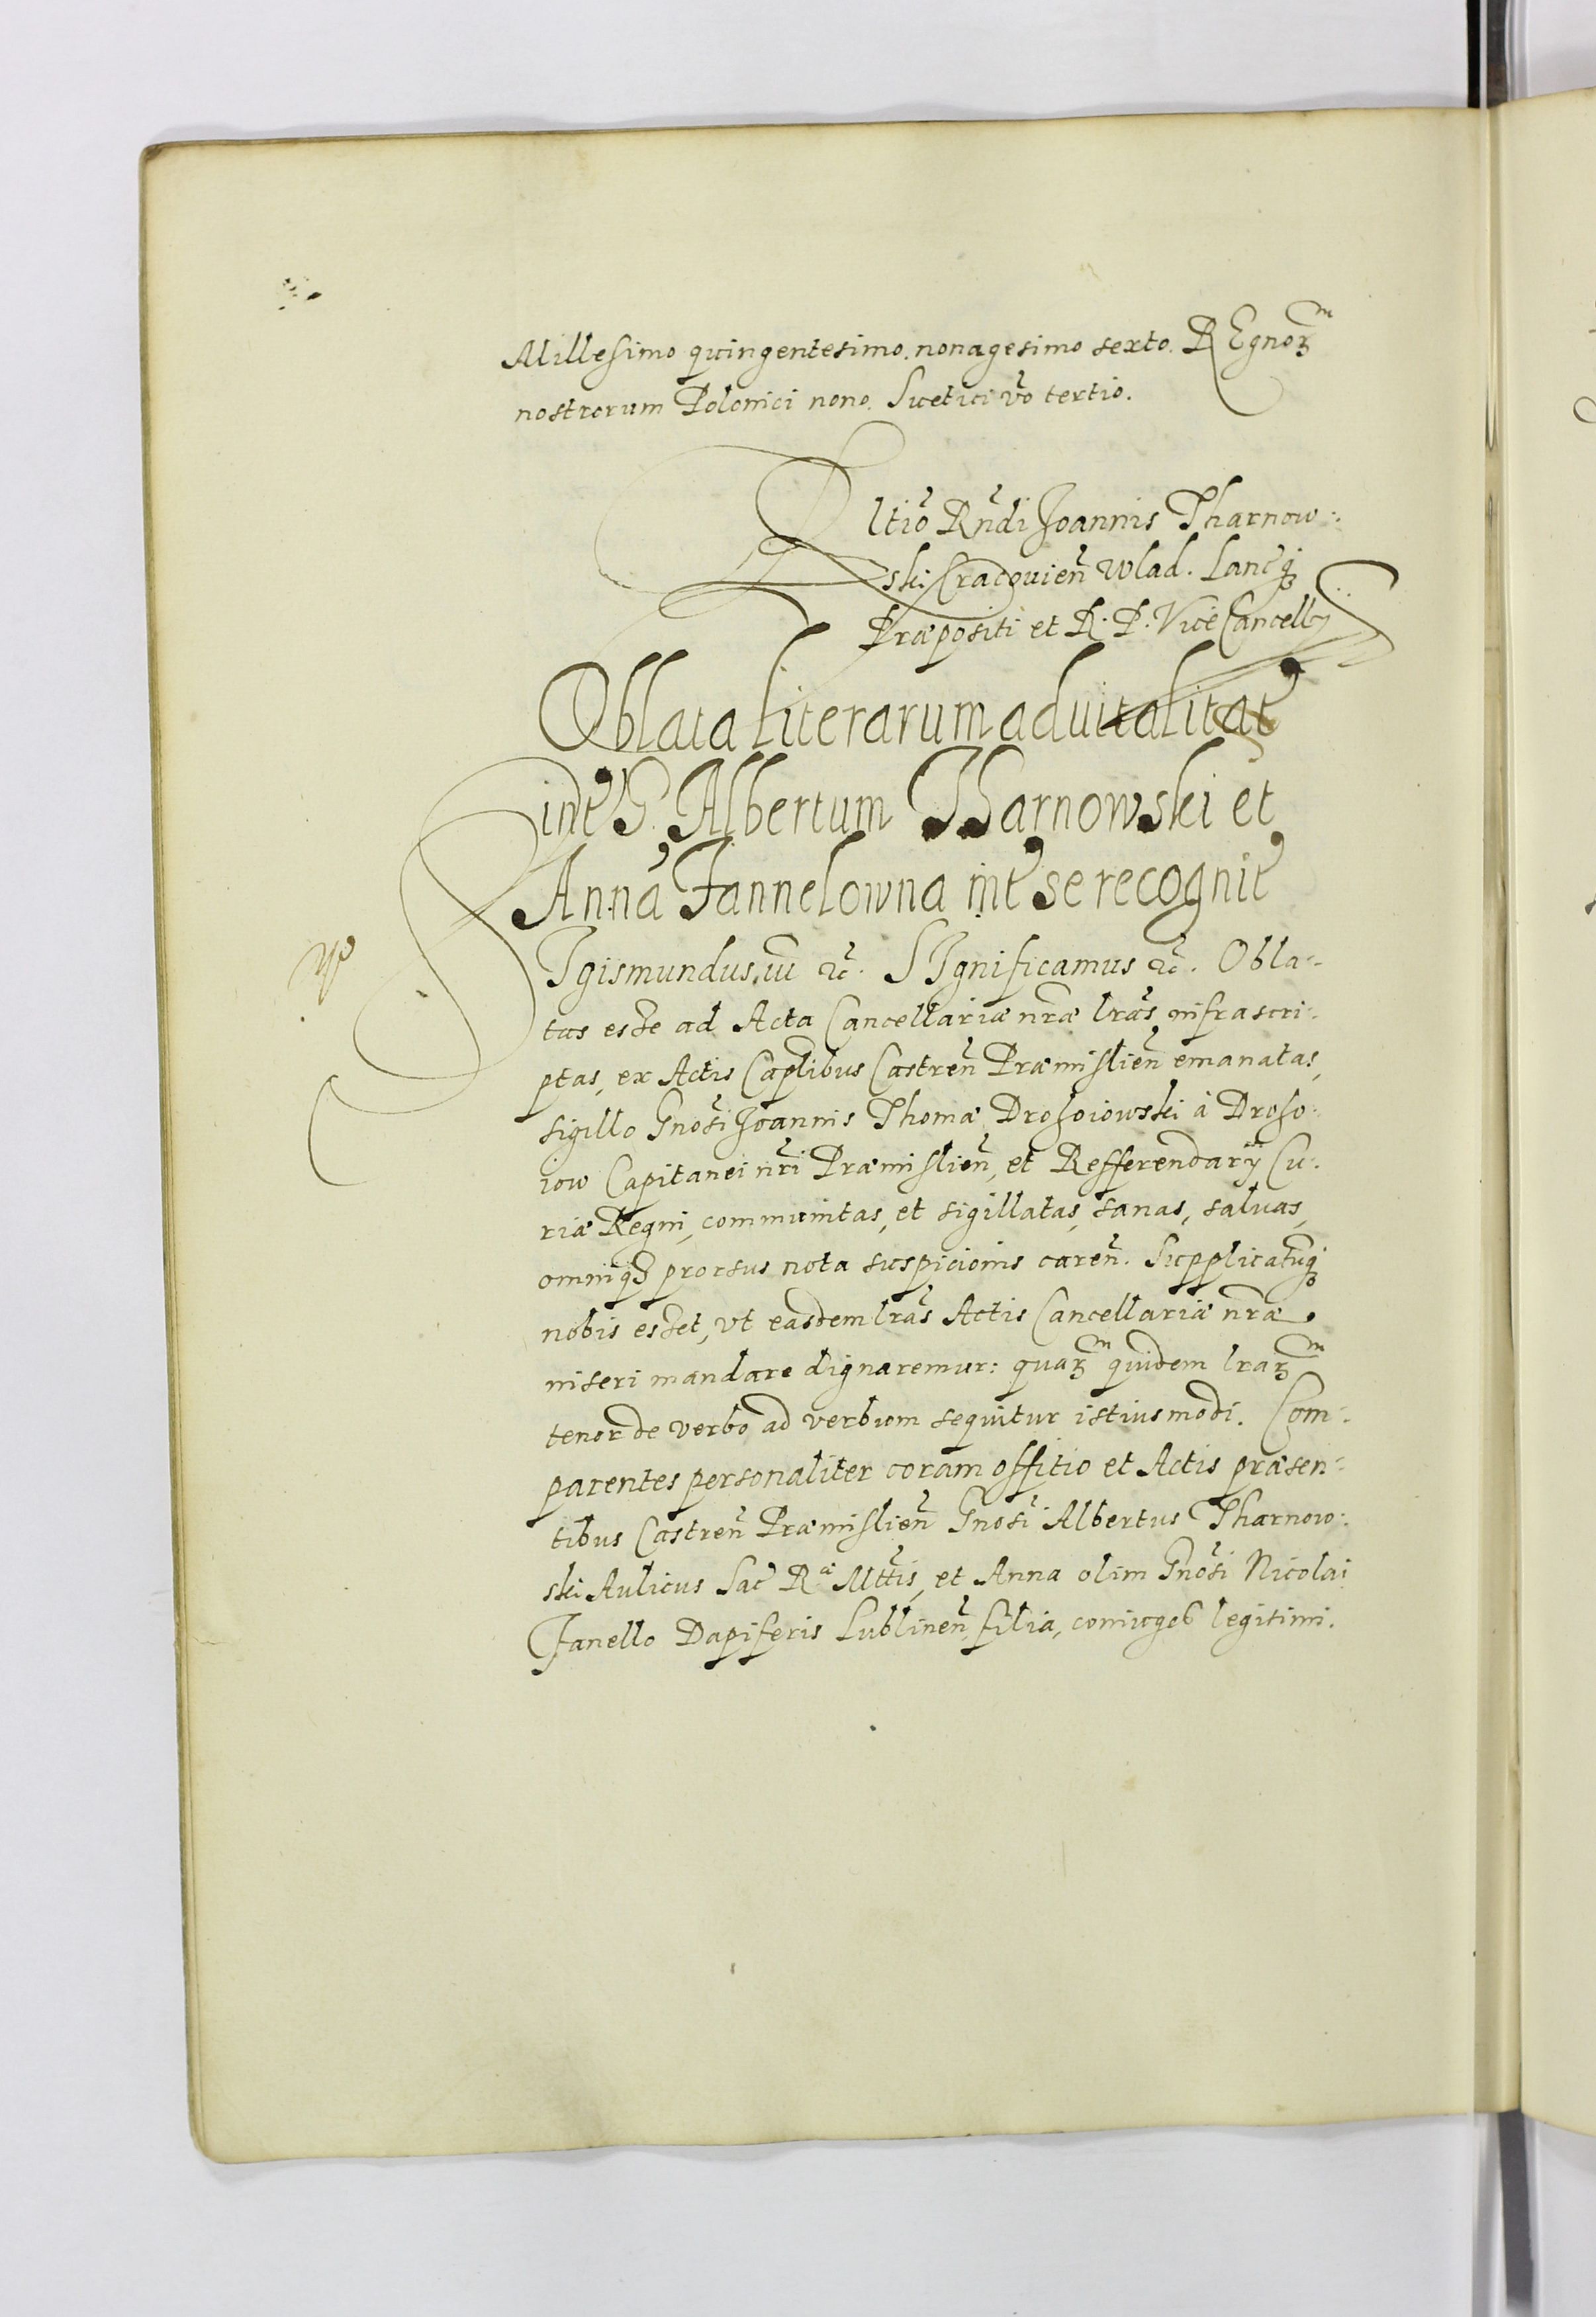 Millesimo quingentesimo nonagesimo sexto. REgnoꝝm
nostrorum Polonici nono. Suetici vo tertio.
Rltio Rndi Joannis Tharnow:
ski Cracovien Wlad. Lancꝫ
Præpositi et R. P. ViceCancellÿ
Oblata literarum aduitalitat
int G. Albertum Tharnowski et
Anna Jannelowna int se recognit
SIgismundus iii ꝛc. SIgnificamus ꝛc. Obla-
tas esse ad Acta Cancellariæ nræ lras infrascri-
ptas, ex Actis Caplibus Castren Præmislien emanatas,
sigillo Gnosi Joannis Thomæ Drohoiowski à Droho-
iow Capitanei nri Præmislien, et Refferendarÿ Cu-
riæ Regni, communitas, et sigillatas, sanas, saluas,
omniqꝫ prorsus nota suspicionis caren. Supplicatumqꝫ
nobis esset, vt easdem lras Actis Cancellariæ nræ
inseri mandare dignaremur: quaꝝm quidem lraꝝm
tenor de verbo ad verbum sequitur istiusmodi. Com-
parentes personaliter coram offitio et Actis præsen-
tibus Castren Præmislien Gnosi Albertus Tharnow-
ski Aulicus Sac Ræ Mttis, et Anna olim Gnosi Nicolai
Janello Dapiferis Lublinen, filia, coniuges legitimi.